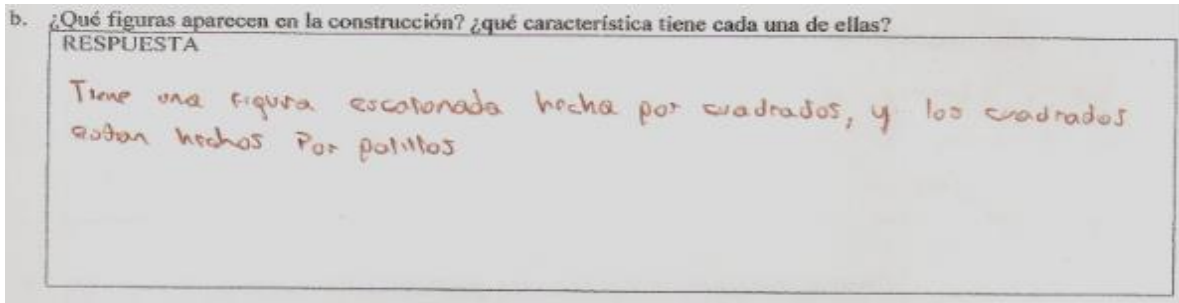 b. ¿Qué figuras aparecen en la construcción? ¿qué característica tiene cada una de ellas?
RESPUESTA
Tiene una figura escalonada hecha por cuadrados, y los cuadrados
estan hechos Por palillos